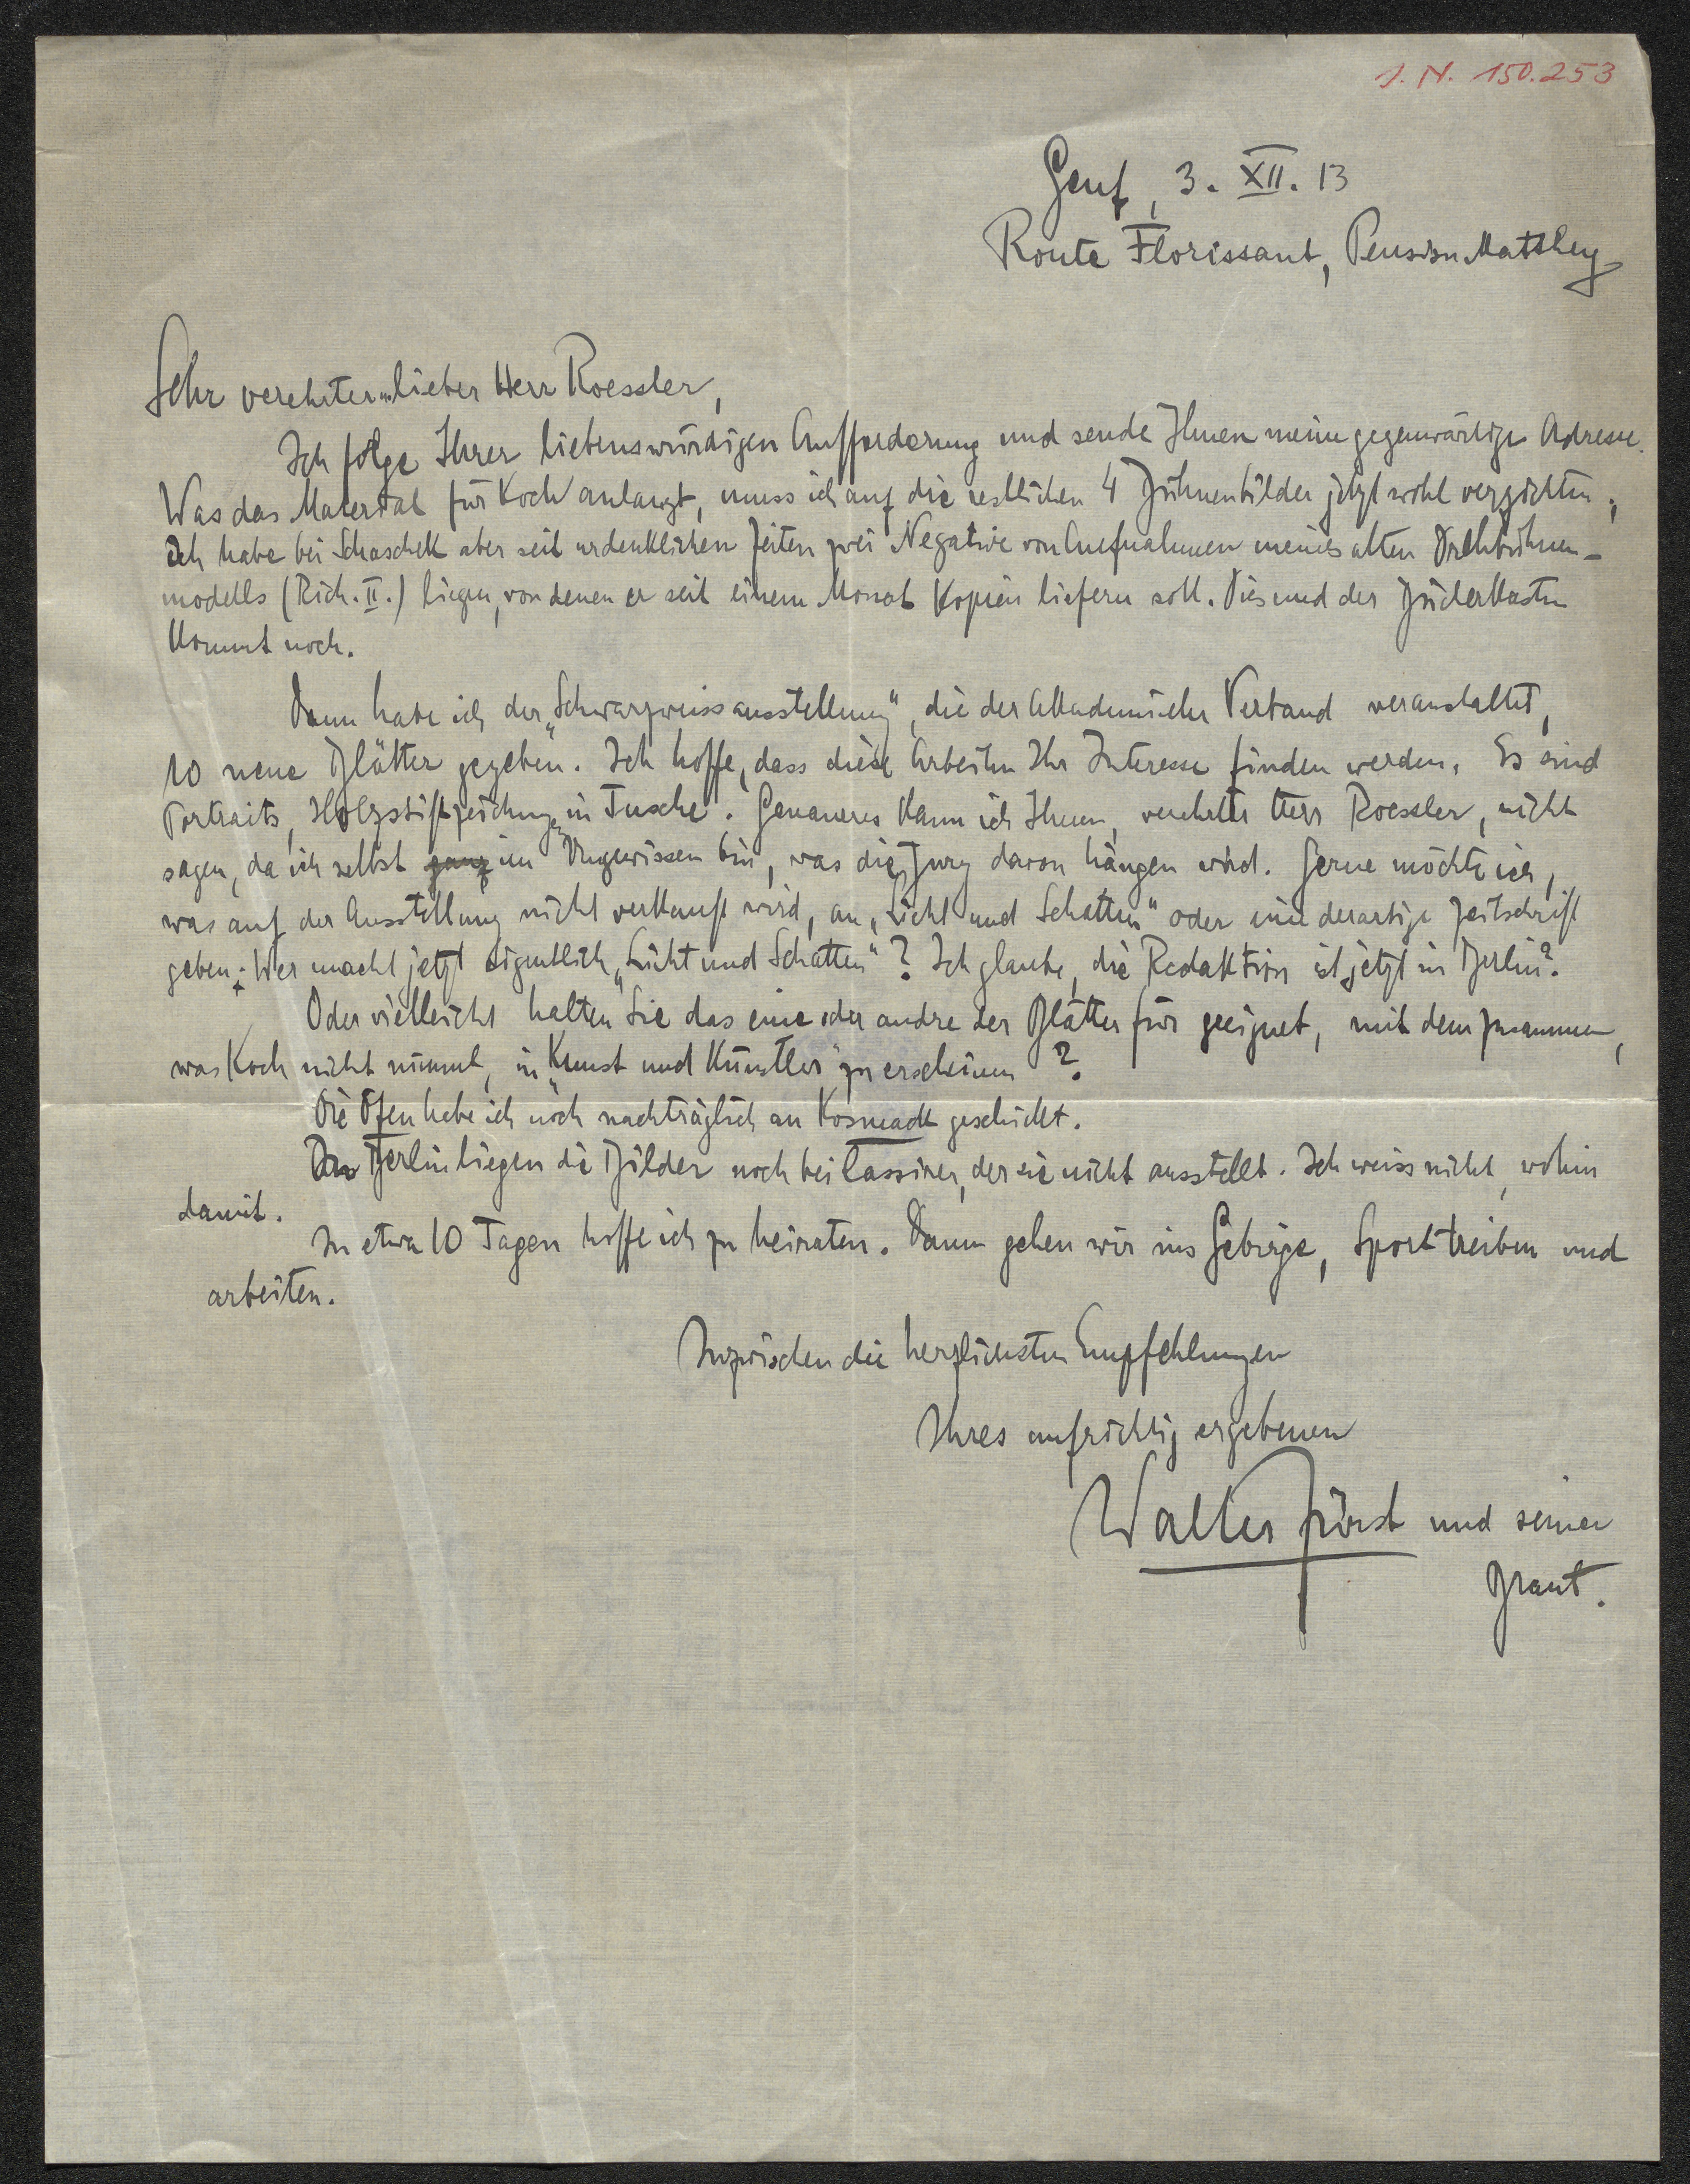 J. N. 150.253
Genf, 3. XII. 13
Route Florissant, Pension Matthey
Sehr verehrter u. lieber Herr Roessler,
Ich folge Ihrer liebenswürdigen Aufforderung und sende Ihnen meine gegenwärtige Adresse.
Was das Material für Koch anlangt, muss ich auf die restlichen 4 Bühnenbilder jetzt wohl verzichten,
Ich habe bei Schaschek aber seit urdenklichen Zeiten zwei Negative von Aufnahmen meines alten Drehbühnen-
modells (Rich. II.) liegen, von denen er seit einem Monat Kopien liefern soll. Dies und der
kommt noch.
Dann habe ich der „Schwarzweissausstellung", die der Akademische Verband veranstaltet,
10 neue Blätter gegeben. Ich hoffe, dass diese Arbeiten Ihr Interesse finden werden. Es sind
Portraits, Holzstiftzeichnungen in Tusche. Genaueres kann ich Ihnen, verehrter Herr Roessler, nicht
sagen, da ich selbst ganz im Ungewissen bin, was die Jury davon hängen wird. Gerne möchte ich,
was auf der Ausstellung nicht verkauft wird, an „Licht und Schatten" oder eine derartige Zeitschrift
geben: Wer macht jetzt eigentlich „Licht und Schatten"? Ich glaube, die Redaktion ist jetzt in Berlin?
Oder vielleicht halten Sie das eine oder andre der Blätter für geeignet, mit dem zusammen,
was Koch nicht nimmt, in „Kunst und Künstler" zu erscheinen?
Die Ofen habe ich noch nachträglich an Kosmack geschickt.
In Berlin liegen die Bilder noch bei Cassirer, der sie nicht ausstellt. Ich weiss nicht, wohin
damit.
In etwa 10 Tagen hoffe ich zu heiraten. Dann gehen wir ins Gebirge, Sport treiben und
arbeiten.
Inzwischen die herzlichsten Empfehlungen
Ihres aufrichtig ergebenen
Walter Fürst und seiner
Braut.